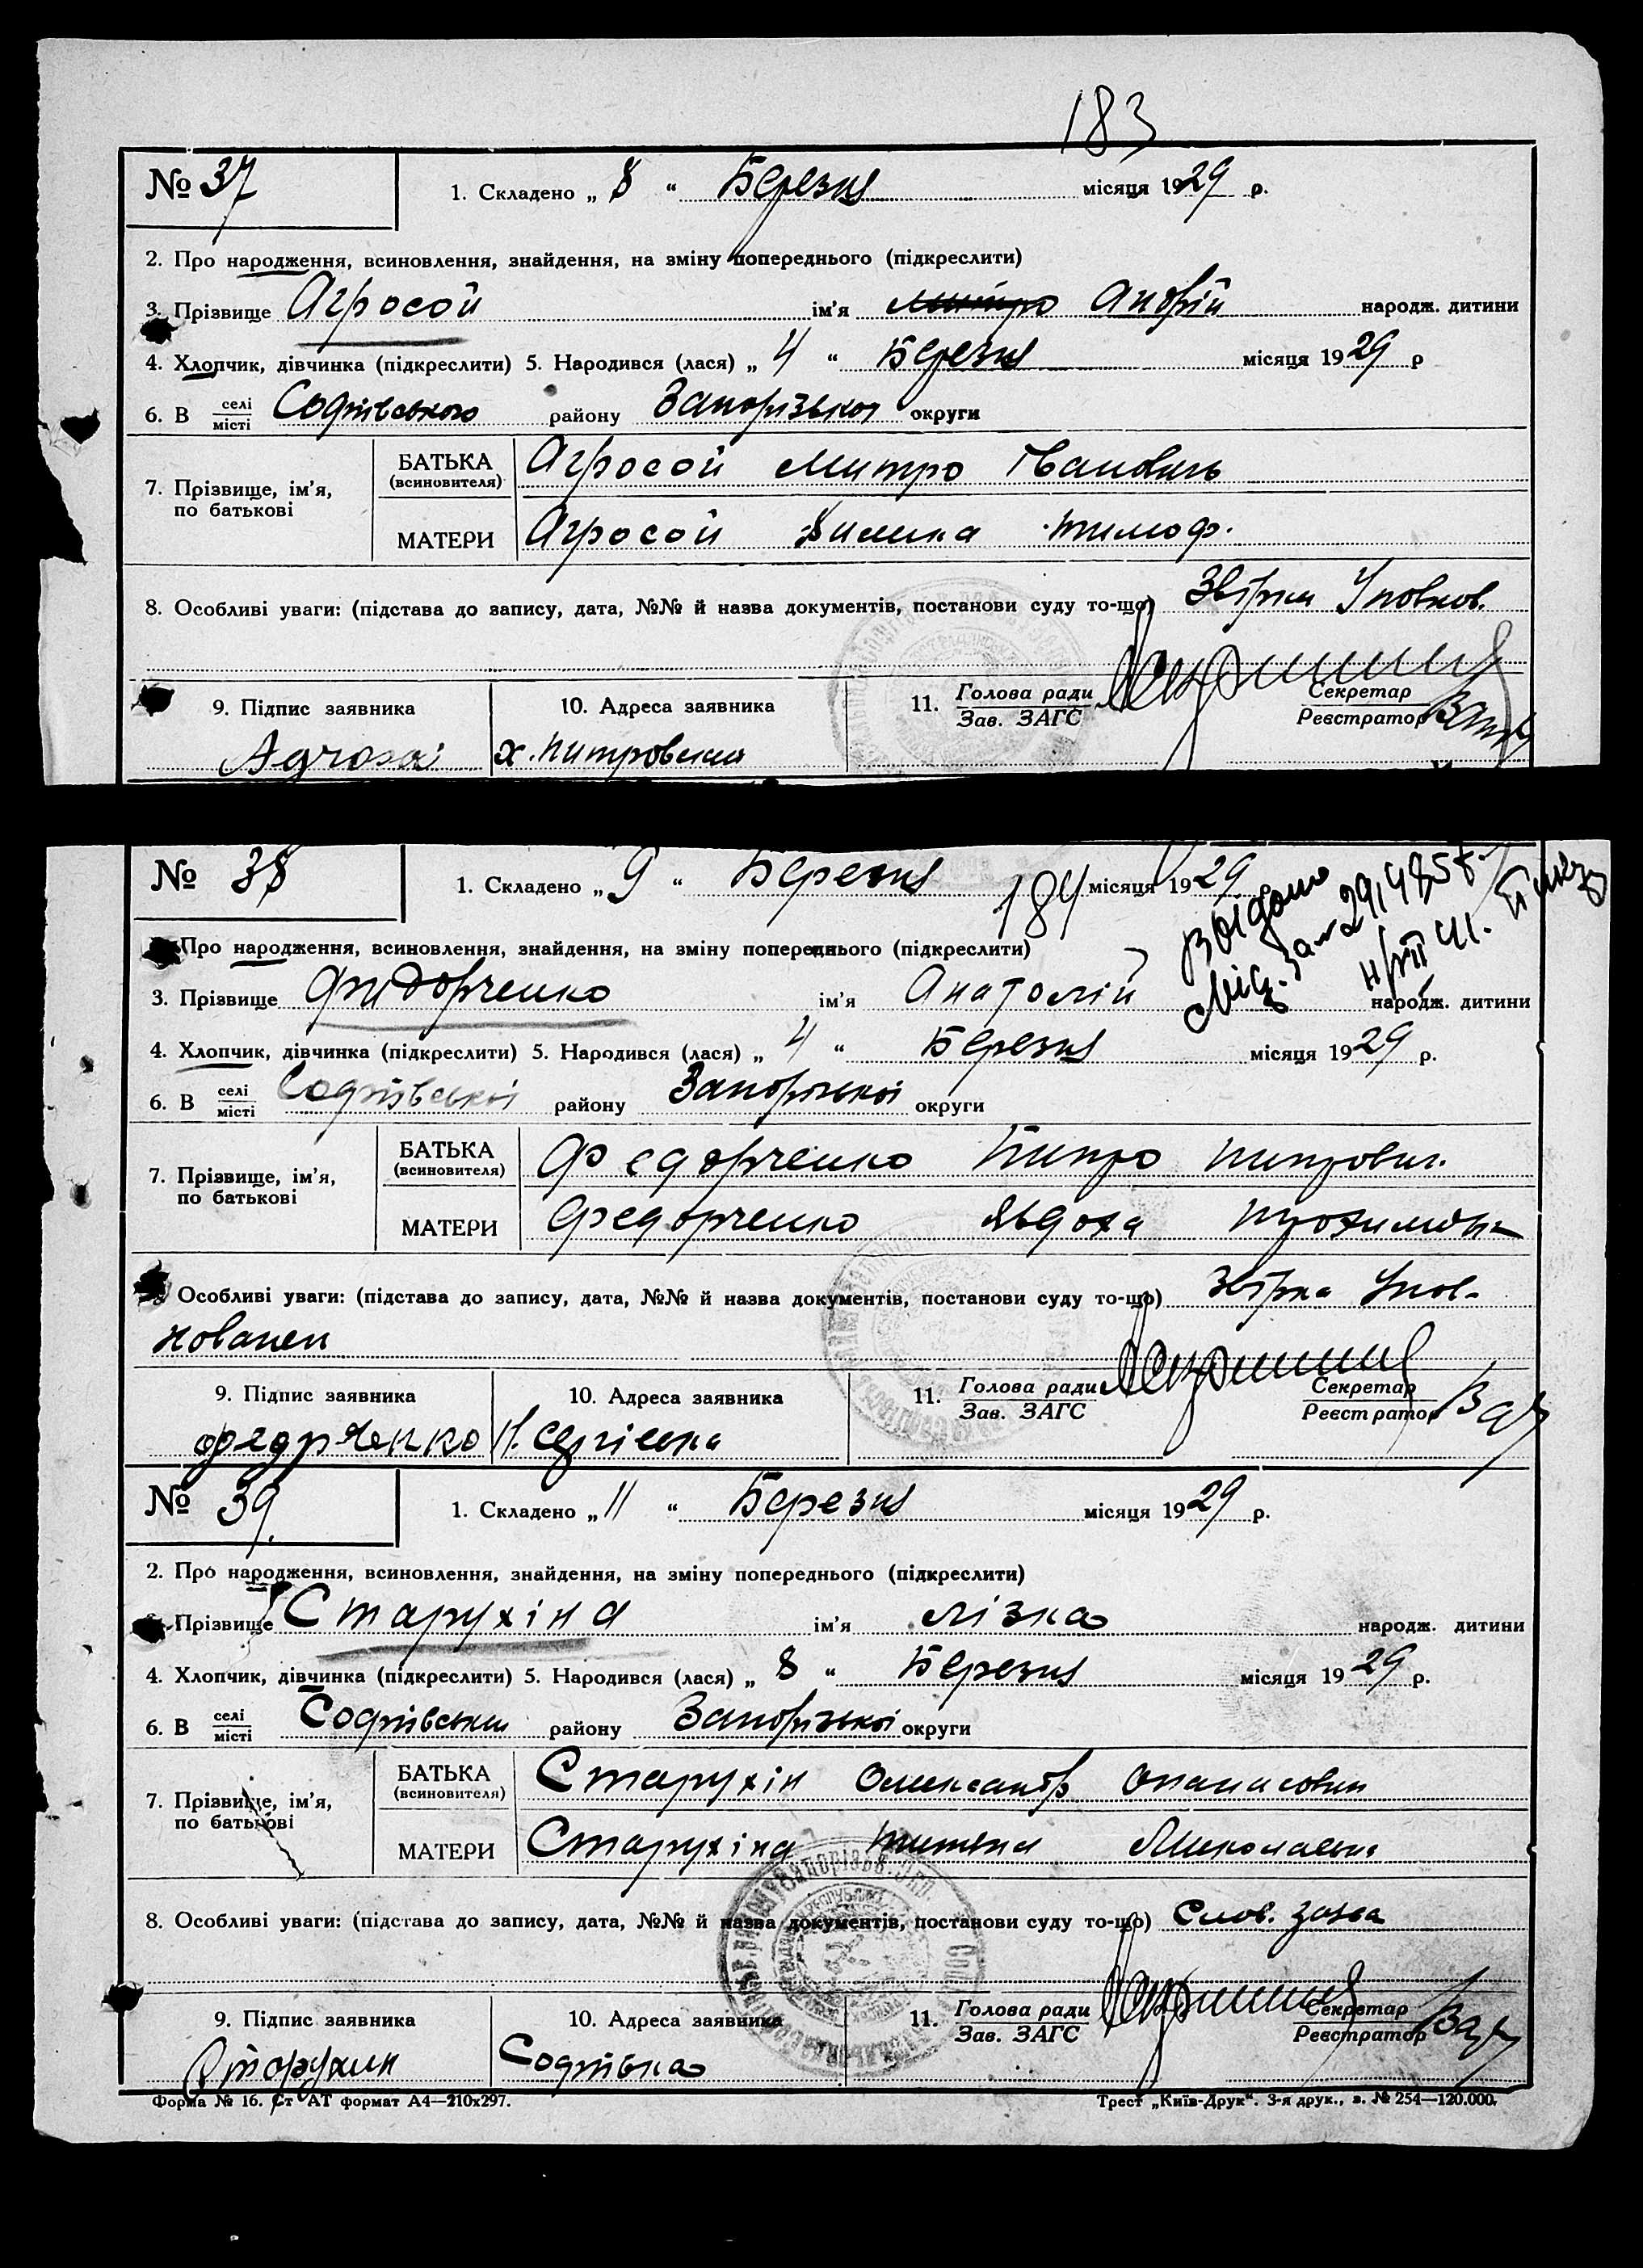 183
№ 37
1. Складено „ 8 “ Березня місяця 1929 р.
2. Про народження, всиновлення, знайдення, на зміну попереднього (підкреслити)
3. Прізвище Агросой ім’я Митро Андрій народж. дитини
4. Хлопчик, дівчинка (підкреслити) 5. Народився (лася) „ 4 “ Березня місяця 1929 р
6. В селі/місті Софіівського району Запорізької округи
7. Прізвище, ім’я, по батькові
БАТЬКА (всиновителя) Агросой Митро Іванович
МАТЕРИ Агросой Тимоф.
8. Особливі уваги: (підстава до запису, дата, №№ й назва документів, постанови суду то-що) Звірка Уповнов.
9. Підпис заявника
10. Адреса заявника
11. Голова ради/Зав. ЗАГС
Секретар/Реєстратор
х.
№ 38
1. Складено „ 9 “ Березня 184 місяця 1929
Видано
2. Про народження, всиновлення, знайдення, на зміну попереднього (підкреслити)
3. Прізвище Фидорченко ім’я Анатолій народж. дитини
4. Хлопчик, дівчинка (підкреслити) 5. Народився (лася) „ 4 “ Березня місяця 1929 р.
6. В селі/місті Софіівської району Запорізької округи
7. Прізвище, ім’я, по батькові
БАТЬКА (всиновителя) Федорченко Питро Питрович
МАТЕРИ Федорченко Явдоха
8. Особливі уваги: (підстава до запису, дата, №№ й назва документів, постанови суду то-що) Звірка Упов-
новажен
9. Підпис заявника
10. Адреса заявника
11. Голова ради/Зав. ЗАГС
Секретар/Реєстратор
Федрченко
№ 39.
1. Складено „ 11 “ Березня місяця 1929 р.
2. Про народження, всиновлення, знайдення, на зміну попереднього (підкреслити)
3. Прізвище Старухіна ім’я Лізка народж. дитини
4. Хлопчик, дівчинка (підкреслити) 5. Народився (лася) „ 8 “ Березня місяця 1929 р.
6. В селі/місті Софіівський району Запорізької округи
7. Прізвище, ім’я, по батькові
БАТЬКА (всиновителя) Старухін Олександр Опанасович
МАТЕРИ Старухіна Титяна Миколаевна
8. Особливі уваги: (підстава до запису, дата, №№ й назва документів, постанови суду то-що) Слов. заява
9. Підпис заявника
10. Адреса заявника
11. Голова ради/Зав. ЗАГС
Секретар/Реєстратор
Сторухин
Софіівка
Форма № 16. Ст АТ формат А4—210х297.
Трест „Київ-Друк“. 3-я друк., з. № 254—120.000.